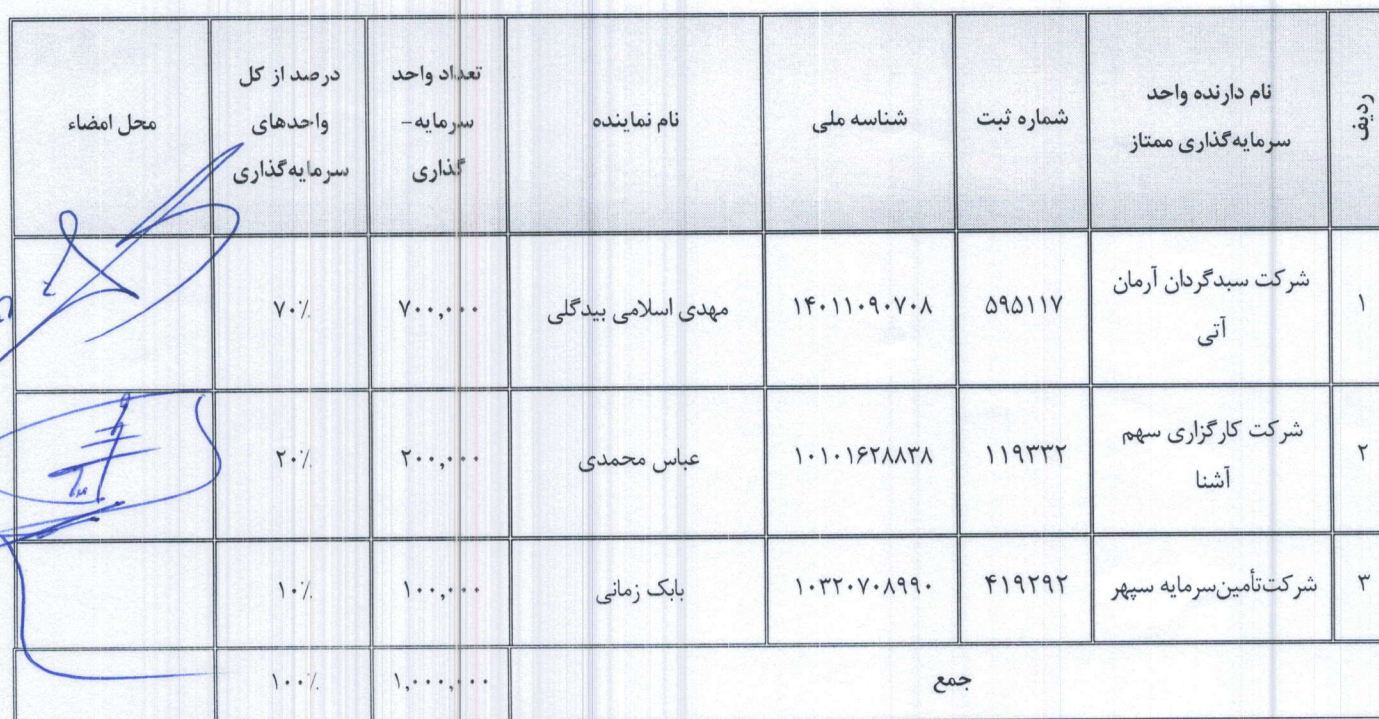 ردیف
نام دارنده واحد
سرمایه‌گذاری ممتاز
شماره ثبت
شناسه ملی
نام نماینده
تعداد واحد
سرمایه-
گذاری
درصد از کل
واحدهای
سرمایه‌گذاری
محل امضاء
۱
شرکت سبدگردان آرمان
آتی
۵۹۵۱۱۷
۱۴۰۱۱۰۹۰۷۰۸
مهدی اسلامی بیدگلی
۷۰۰,۰۰۰
۷۰٪
۲
شرکت کارگزاری سهم
آشنا
۱۱۹۳۳۲
۱۰۱۰۱۶۲۸۸۳۸
عباس محمدی
۲۰۰,۰۰۰
۲۰٪
۳
شرکت‌تأمین‌سرمایه سپهر
۴۱۹۲۹۲
۱۰۳۲۰۷۰۸۹۹۰
بابک زمانی
۱۰۰,۰۰۰
۱۰٪
جمع
۱,۰۰۰,۰۰۰
۱۰۰٪